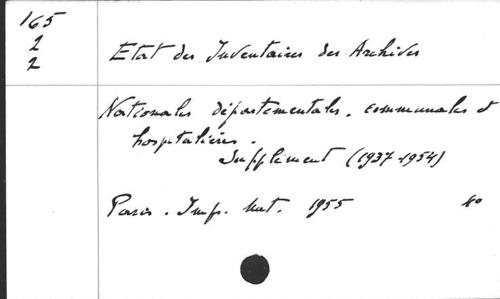 165
2
2
Etat des Inventaires des Archives
Nationales départementales, communales et
hospitalières.
Supplément (1937-1954)
Paris. Imp. Nat. 1955